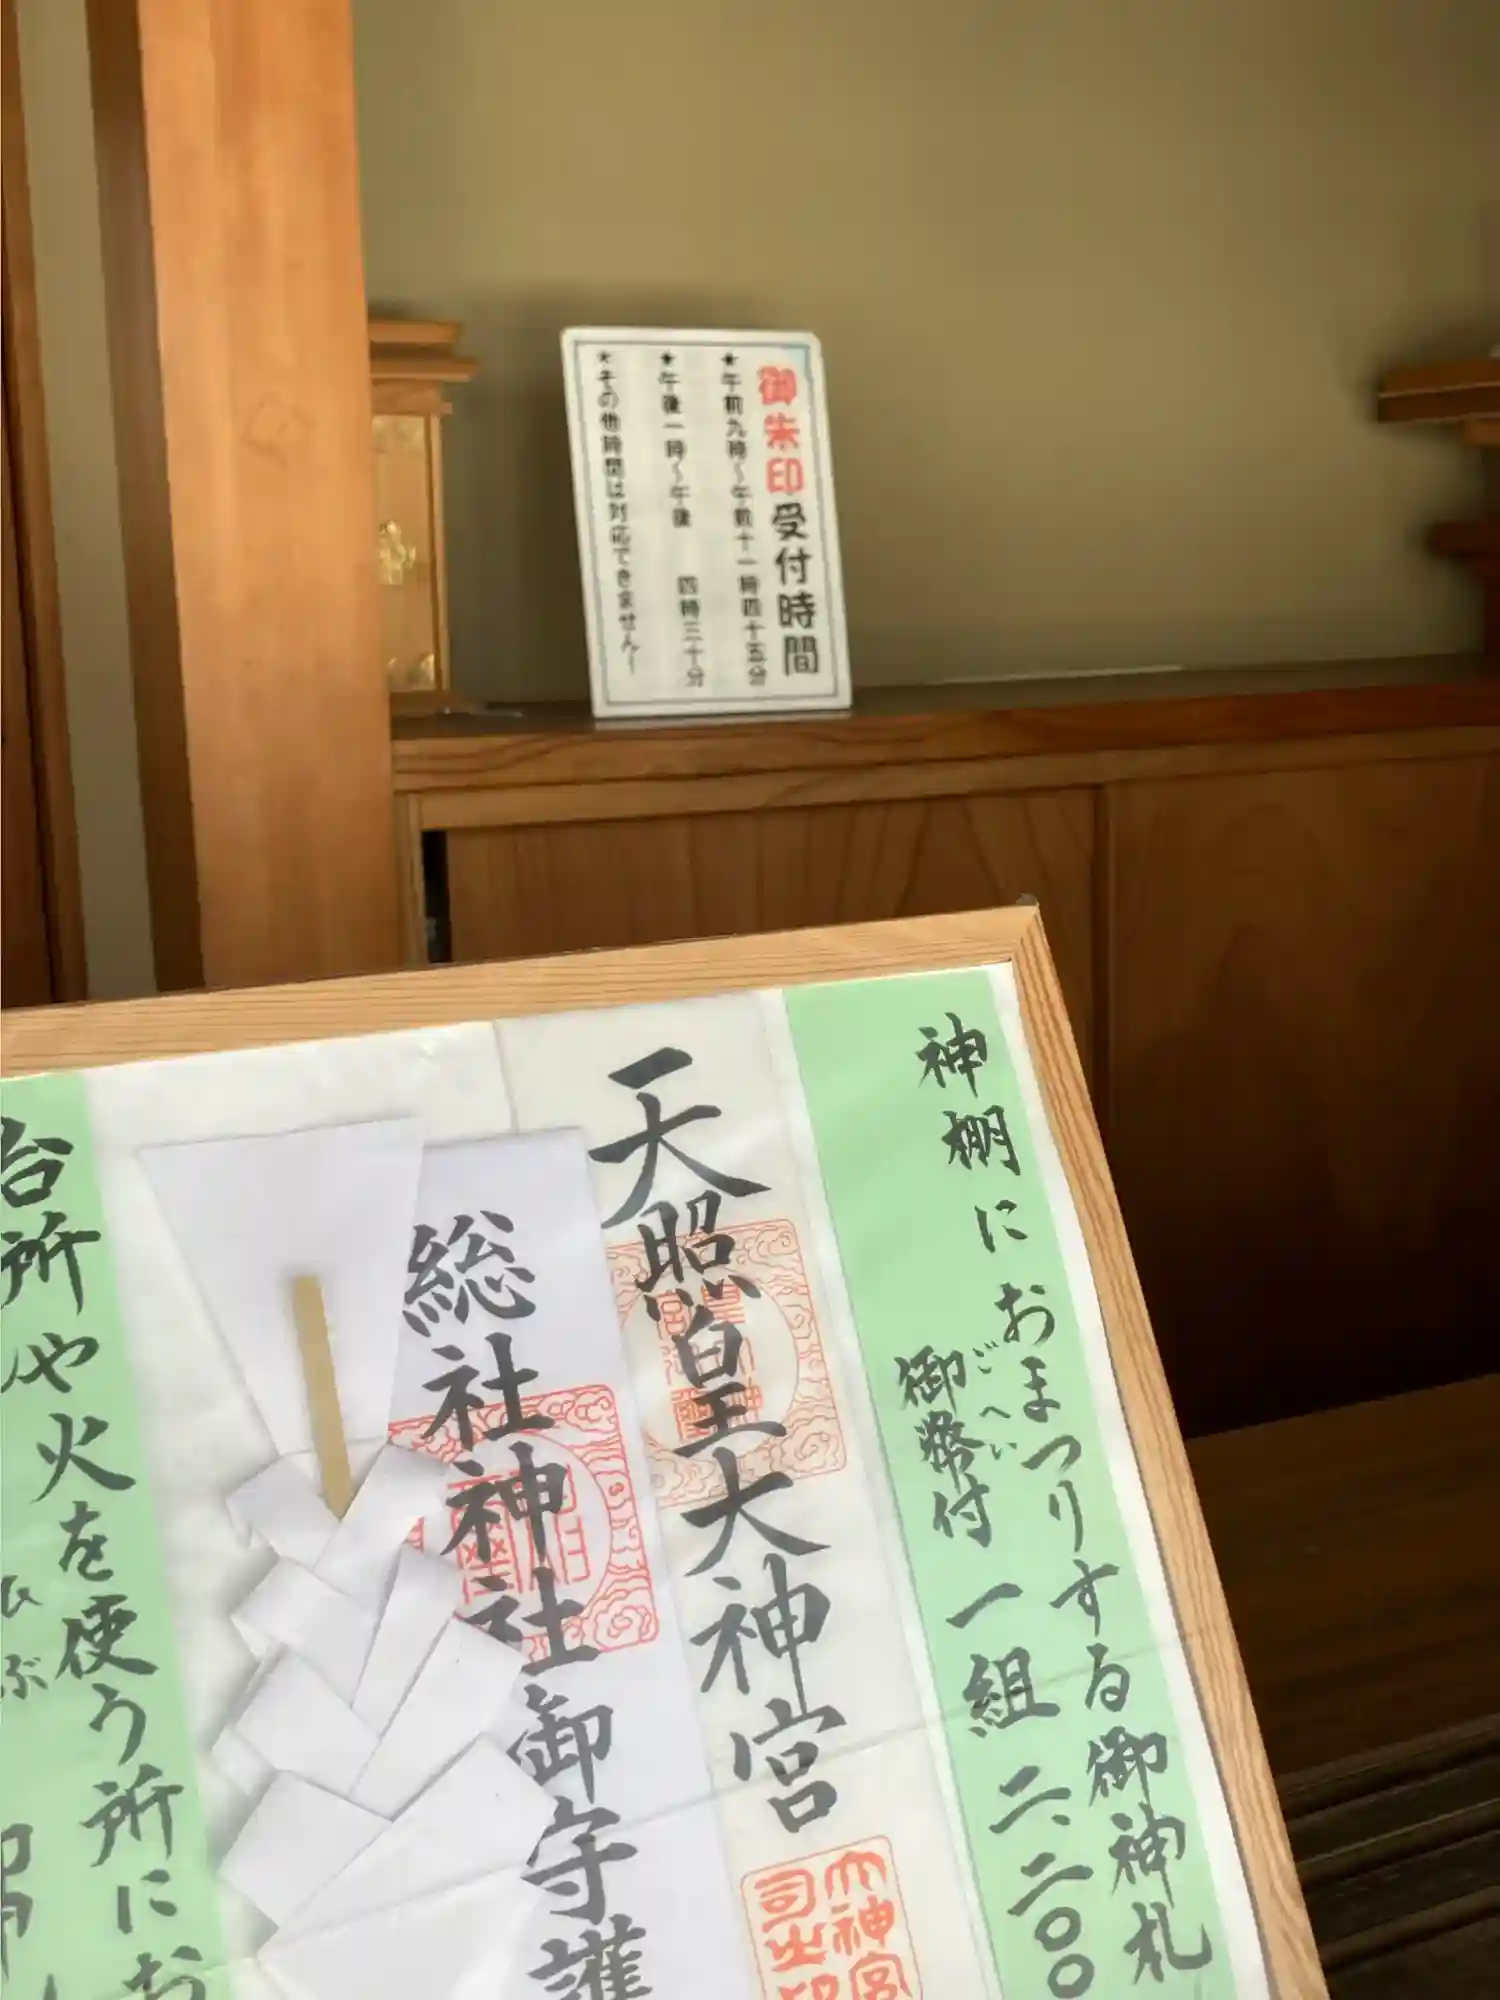 御朱印受付時間
★午前九時~午前十一時四十五分
★午後一時~午後 四時三十分
★その他時間は対応できません!
神棚におまつりする御神札
ごへい
御幣付 一組 二、二〇〇
天照皇大神宮
総社神社御守護
台所や火を使う所にお